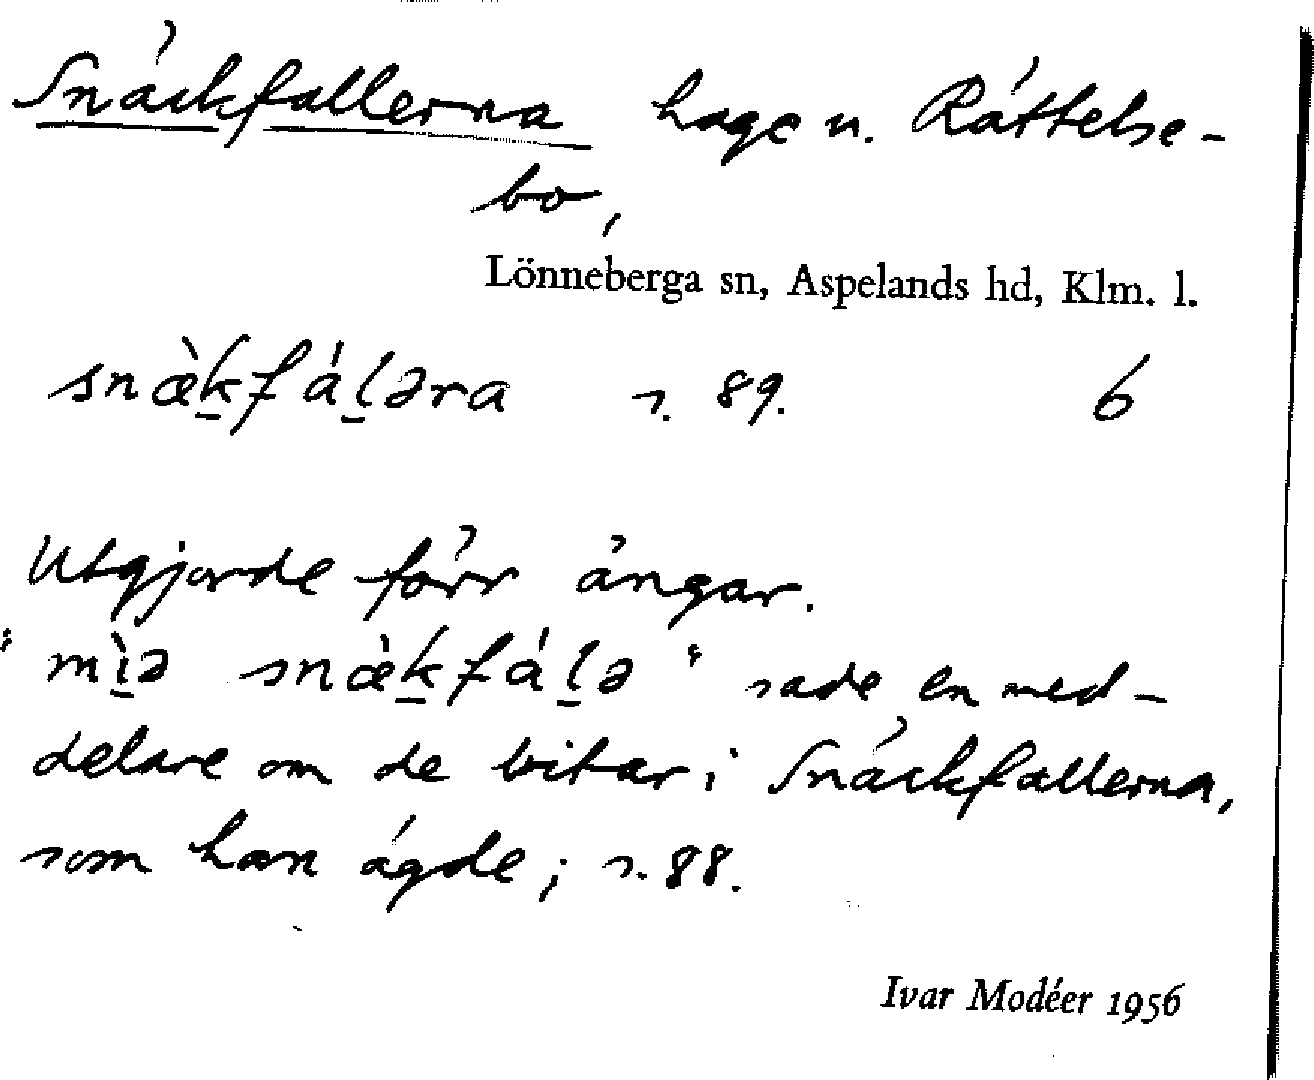 Snäckfallerna hage u. Rättelse-
bo,
Lönneberga sn, Aspelands hd, Klm. l.
snæ̀k̲fál̲əra s. 89. 6
Utgjorde förr ängar.
"mì̲ə snæ̀k̲fál̲ə" sade en med-
delare om de bitar i Snäckfallerna,
som han ägde; s. 88.
Ivar Modéer 1956